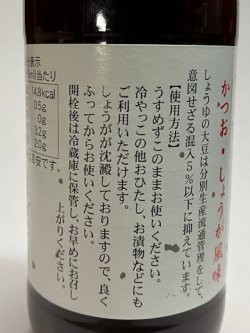 かつお・しょうが風味
しょうゆの大豆は分別生産流通管理をして、
意図せざる混入５％以下に抑えています。
【使用方法】
うすめずこのままお使いください。
冷やっこの他おひたし、お漬物などにも
ご利用いただけます。
しょうがが沈澱しておりますので、良く
ふってからお使いください。
開栓後は冷蔵庫に保管し、お早めにお召し
上がりください。
表示
5ml当たり
14.8kcal
0.5g
0g
3.2g
2.0g
目安です。